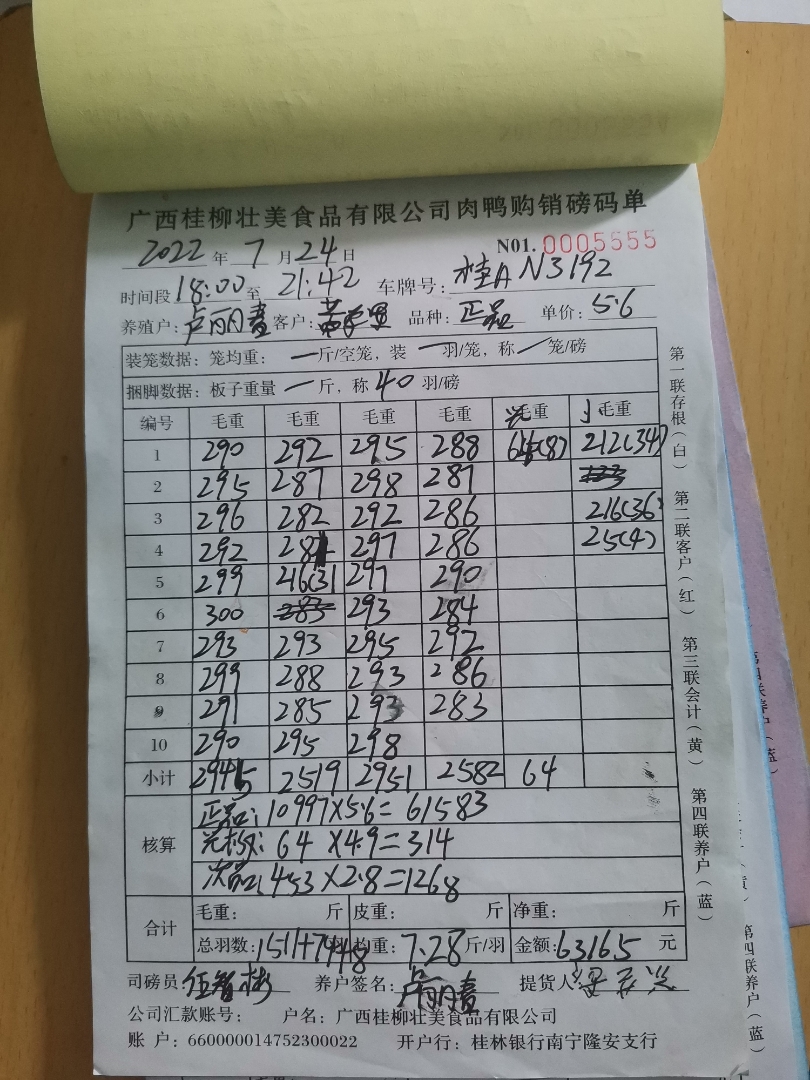 广西桂柳壮美食品有限公司肉鸭购销磅码单
2022 年 7 月 24 日 N01. 0005555
时间段 18:00 至 21:42 车牌号: 桂A N3192
养殖户: 卢丽春 客户: 品种: 正品 单价: 5.6
装笼数据: 笼均重: 一斤/空笼, 装 一羽/笼, 称 一笼/磅
捆脚数据: 板子重量 一斤, 称 40 羽/磅
编号 毛重 毛重 毛重 毛重 毛重 毛重
1 290 292 295 288 64(8) 212(34)
2 295 287 298 287
3 296 282 292 286 216(36)
4 292 281 297 286 25(4)
5 299 216(31 297 290
6 300 283 293 284
7 293 293 295 292
8 299 288 293 286
9 291 285 293 283
10 290 295 298
小计 2945 2519 2951 2582 64
核算 正品: 10997×5.6=61583
64×4.9=314
次品: 453×2.8=1268
合计 毛重: 斤 皮重: 斤 净重: 斤
总羽数: 1511+74+8 均重: 7.28 斤/羽 金额: 63165 元
司磅员 伍智彬 养户签名: 卢丽春 提货人
公司汇款账号: 户名: 广西桂柳壮美食品有限公司
账 户: 660000014752300022 开户行: 桂林银行南宁隆安支行
第一联存根(白) 第二联客户(红) 第三联会计(黄) 第四联养户(蓝)
第四联养户(蓝)